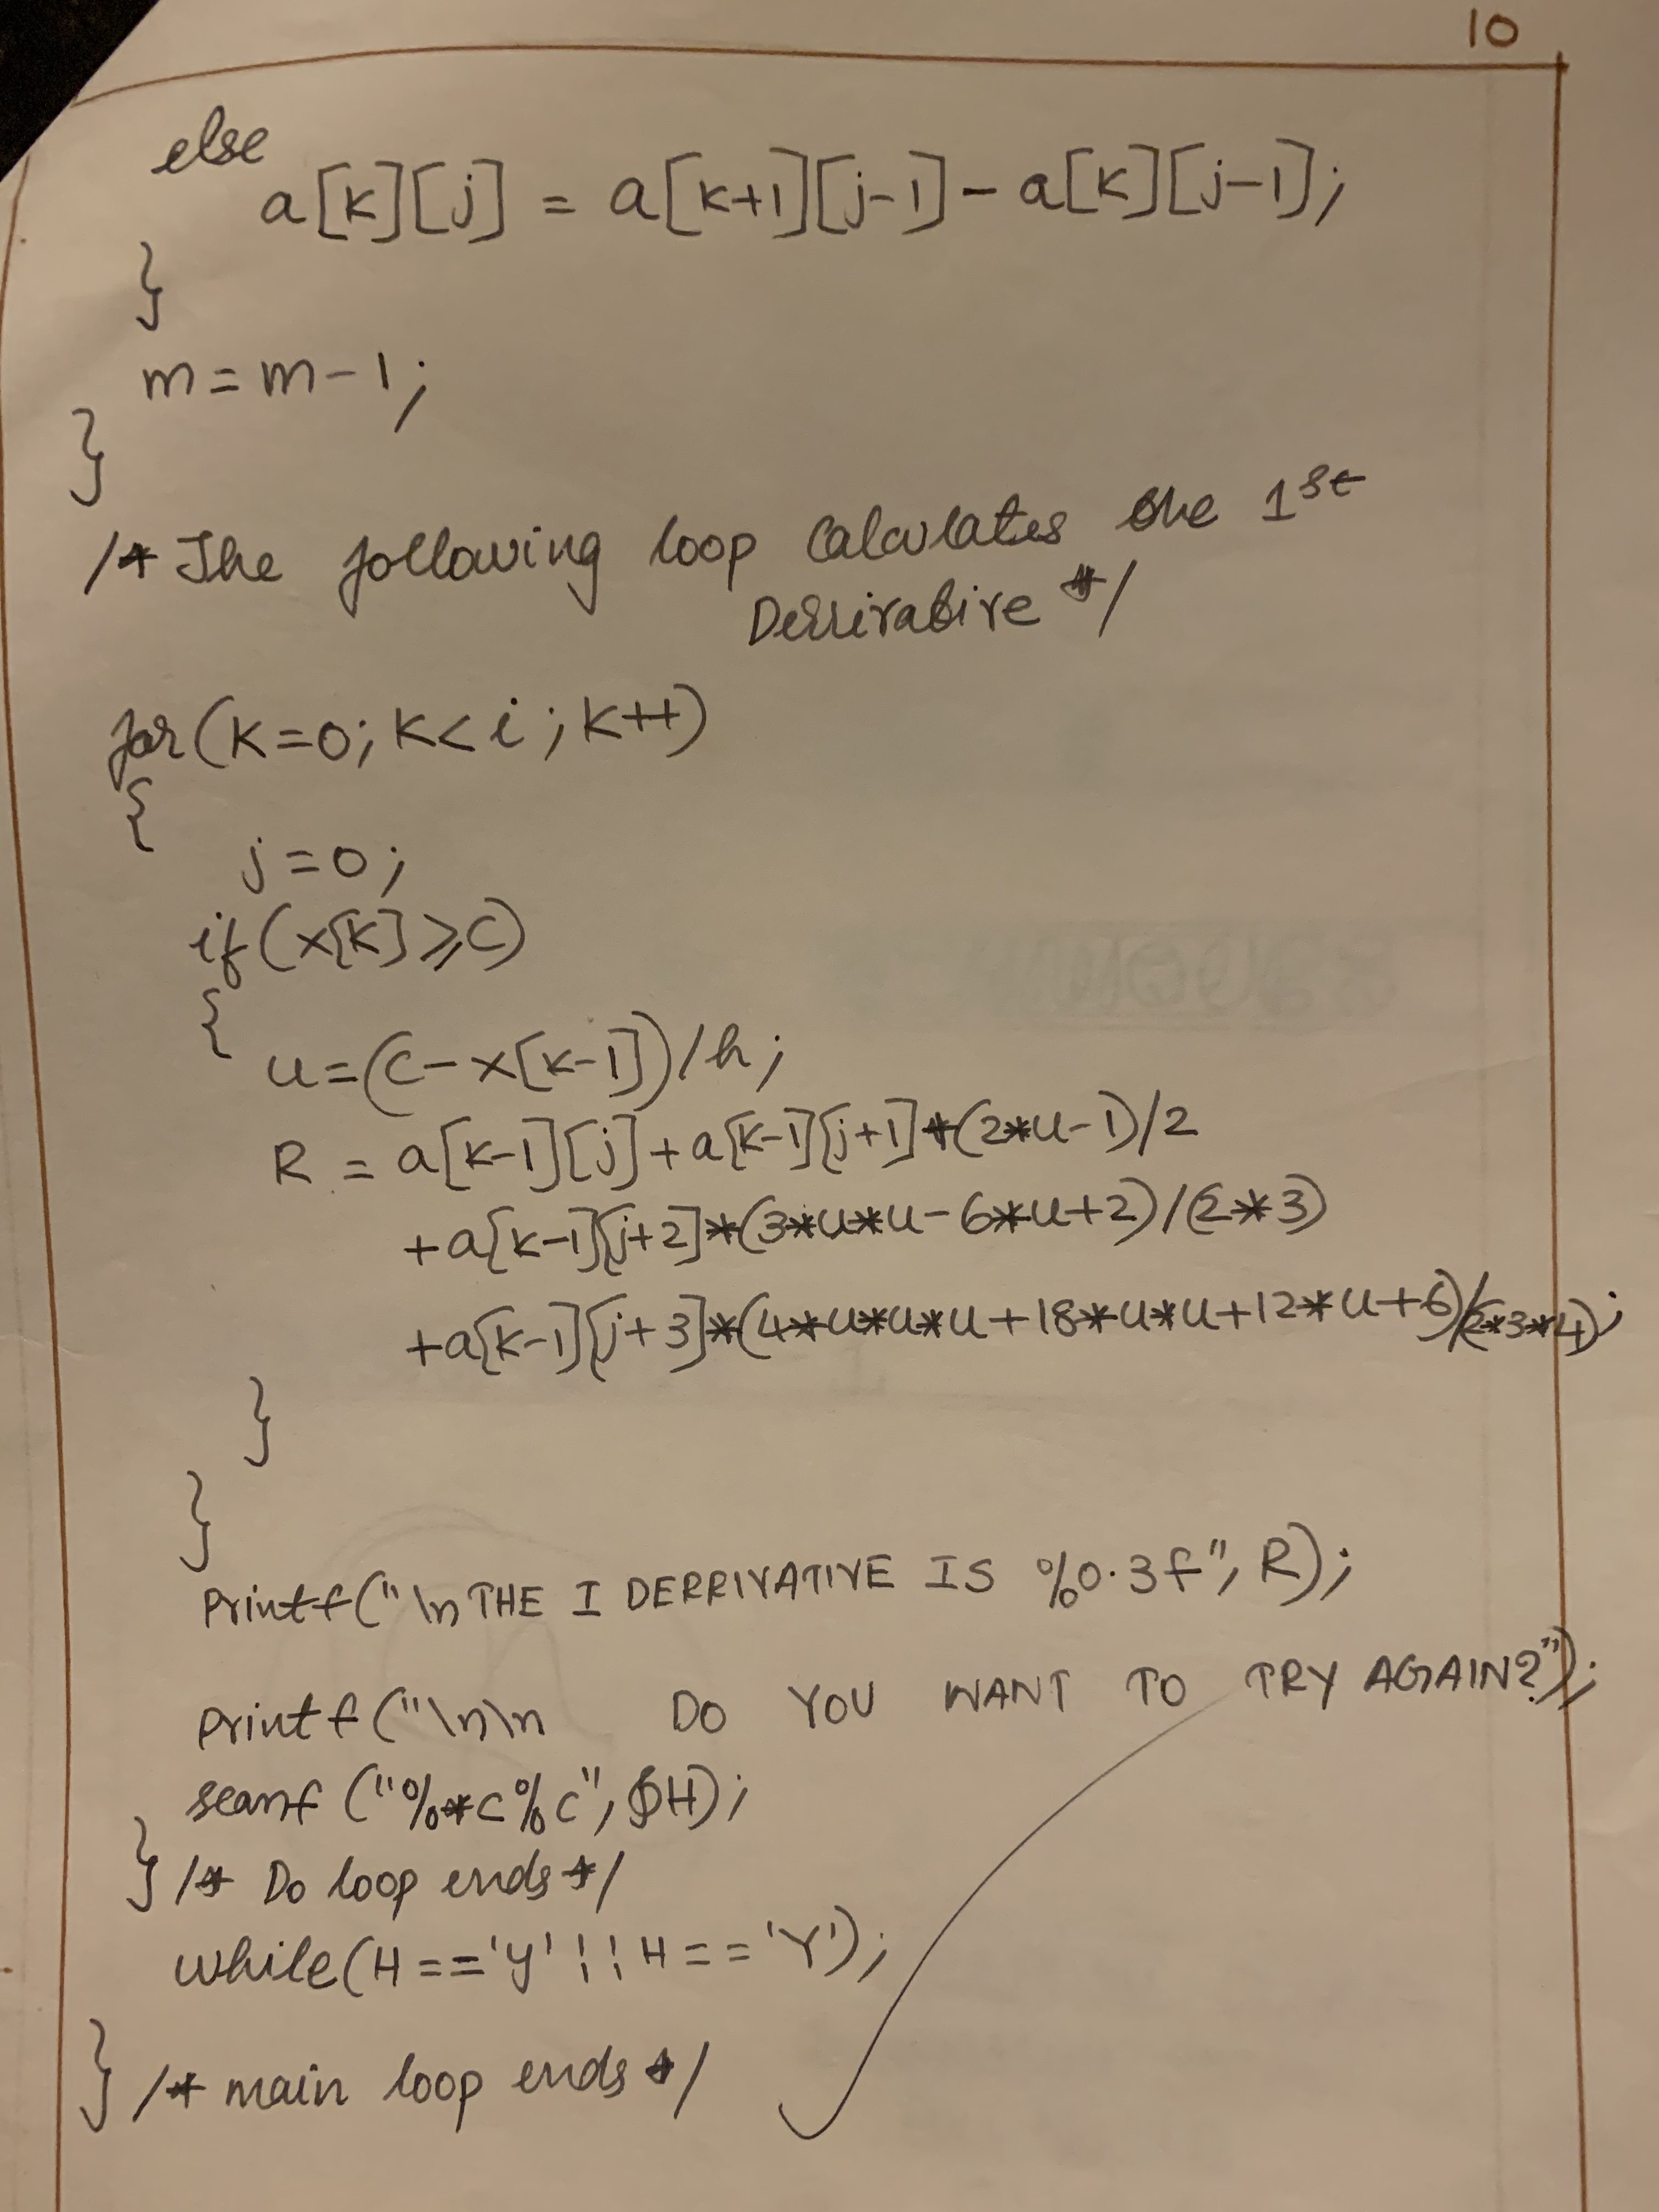 10
else
a[k][j] = a[k+1][j-1] - a[k][j-1];
}
m = m-1;
}
/* The following loop calculates the 1st
Derrivative */
for(k=0; k<i; k++)
{
j=0;
if(x[k]⩾c)
{
u=(c-x[k-1])/h;
R = a[k-1][j]+a[k-1][j+1]*(2*u-1)/2
+a[k-1][j+2]*(3*u*u-6*u+2)/(2*3)
+a[k-1][j+3]*(4*u*u*u+18*u*u+12*u+6)/(2*3*4);
}
}
printf("\n THE I DERRIVATIVE IS %0.3f", R);
printf("\n\n DO YOU WANT TO TRY AGAIN?");
scanf ("%*c%c", &H);
} /* Do loop ends */
while(H=='y'¦¦H=='Y');
} /* main loop ends */